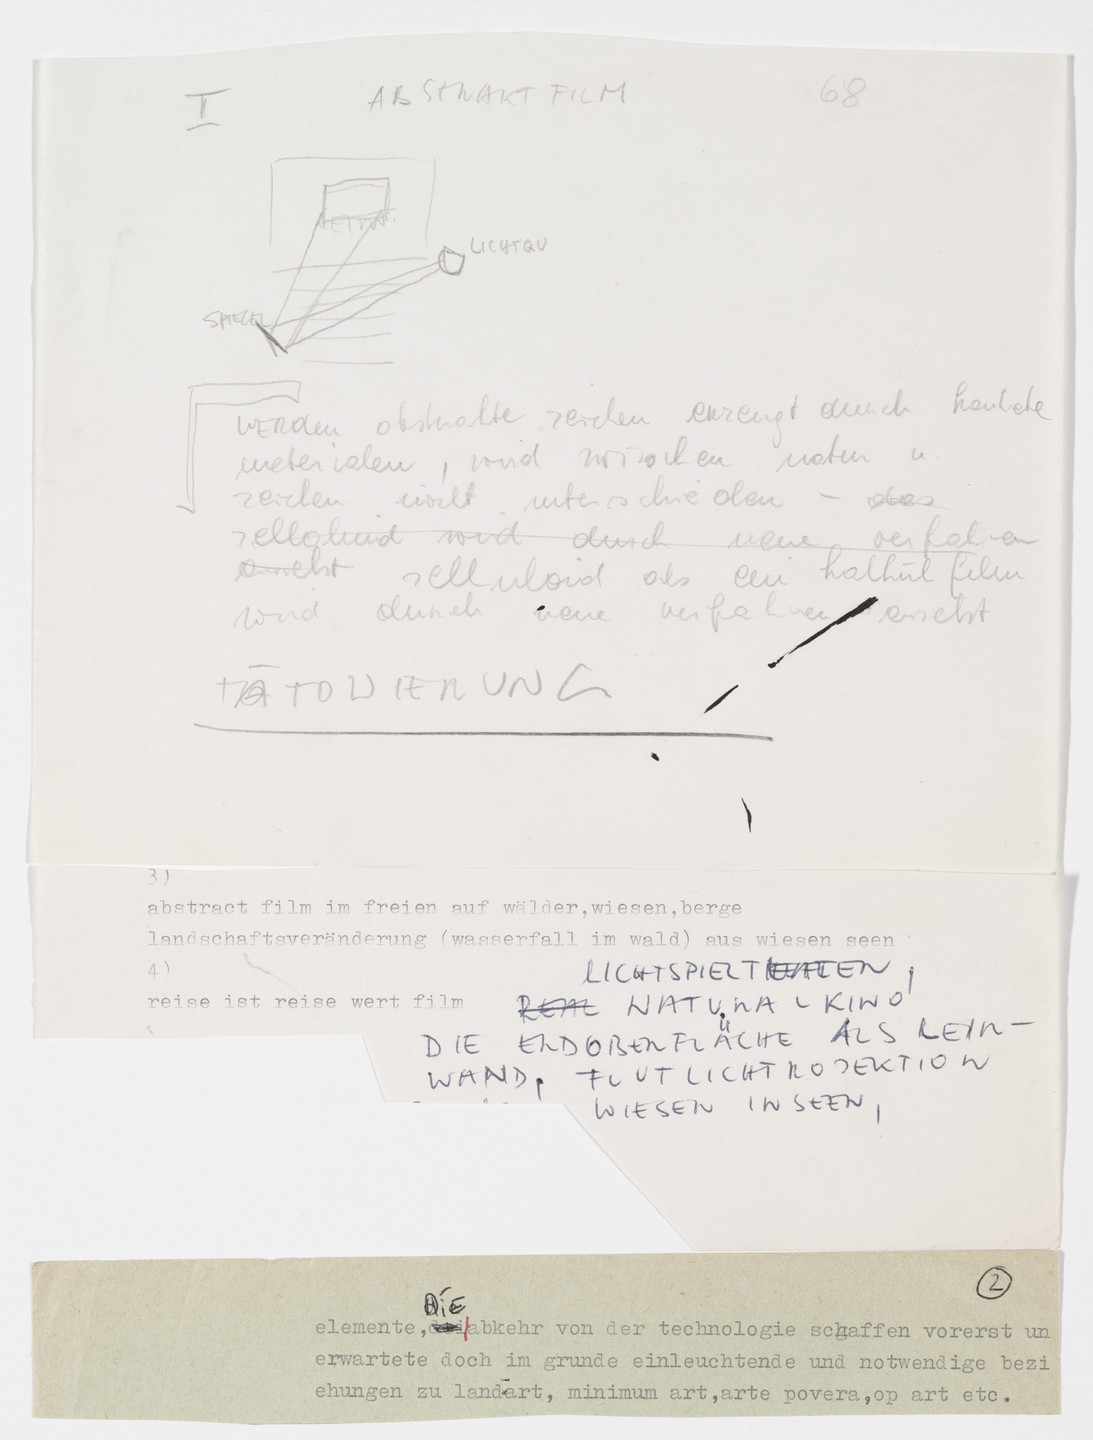 I ABSTRAKT FILM 68
LICHTQU
SPIEGEL
WERDEN abstrakte zeichen erzeugt durch konkrete
materialen, wird zwischen natur u.
zeichen nicht unterschieden – das
zelluloid wird durch neue verfahren
ersetzt zelluloid als ein halthül film
wird durch neue verfahren ersetzt
TÄTOWIERUNG
3)
abstract film im freien auf wälder,wiesen,berge
landschaftsveränderung (wasserfall im wald) aus wiesen seen
4) LICHTSPIELTHEATEN,
reise ist reise wert film REAL NATURAL KINO
DIE ERDOBERFLÄCHE ALS LEIN-
WAND, FLUTLICHTROJEKTION
WIESEN IN SEEN,
2
DiE
elemente,die/abkehr von der technologie schaffen vorerst un
erwartete doch im grunde einleuchtende und notwendige bezi
ehungen zu landart, minimum art,arte povera,op art etc.